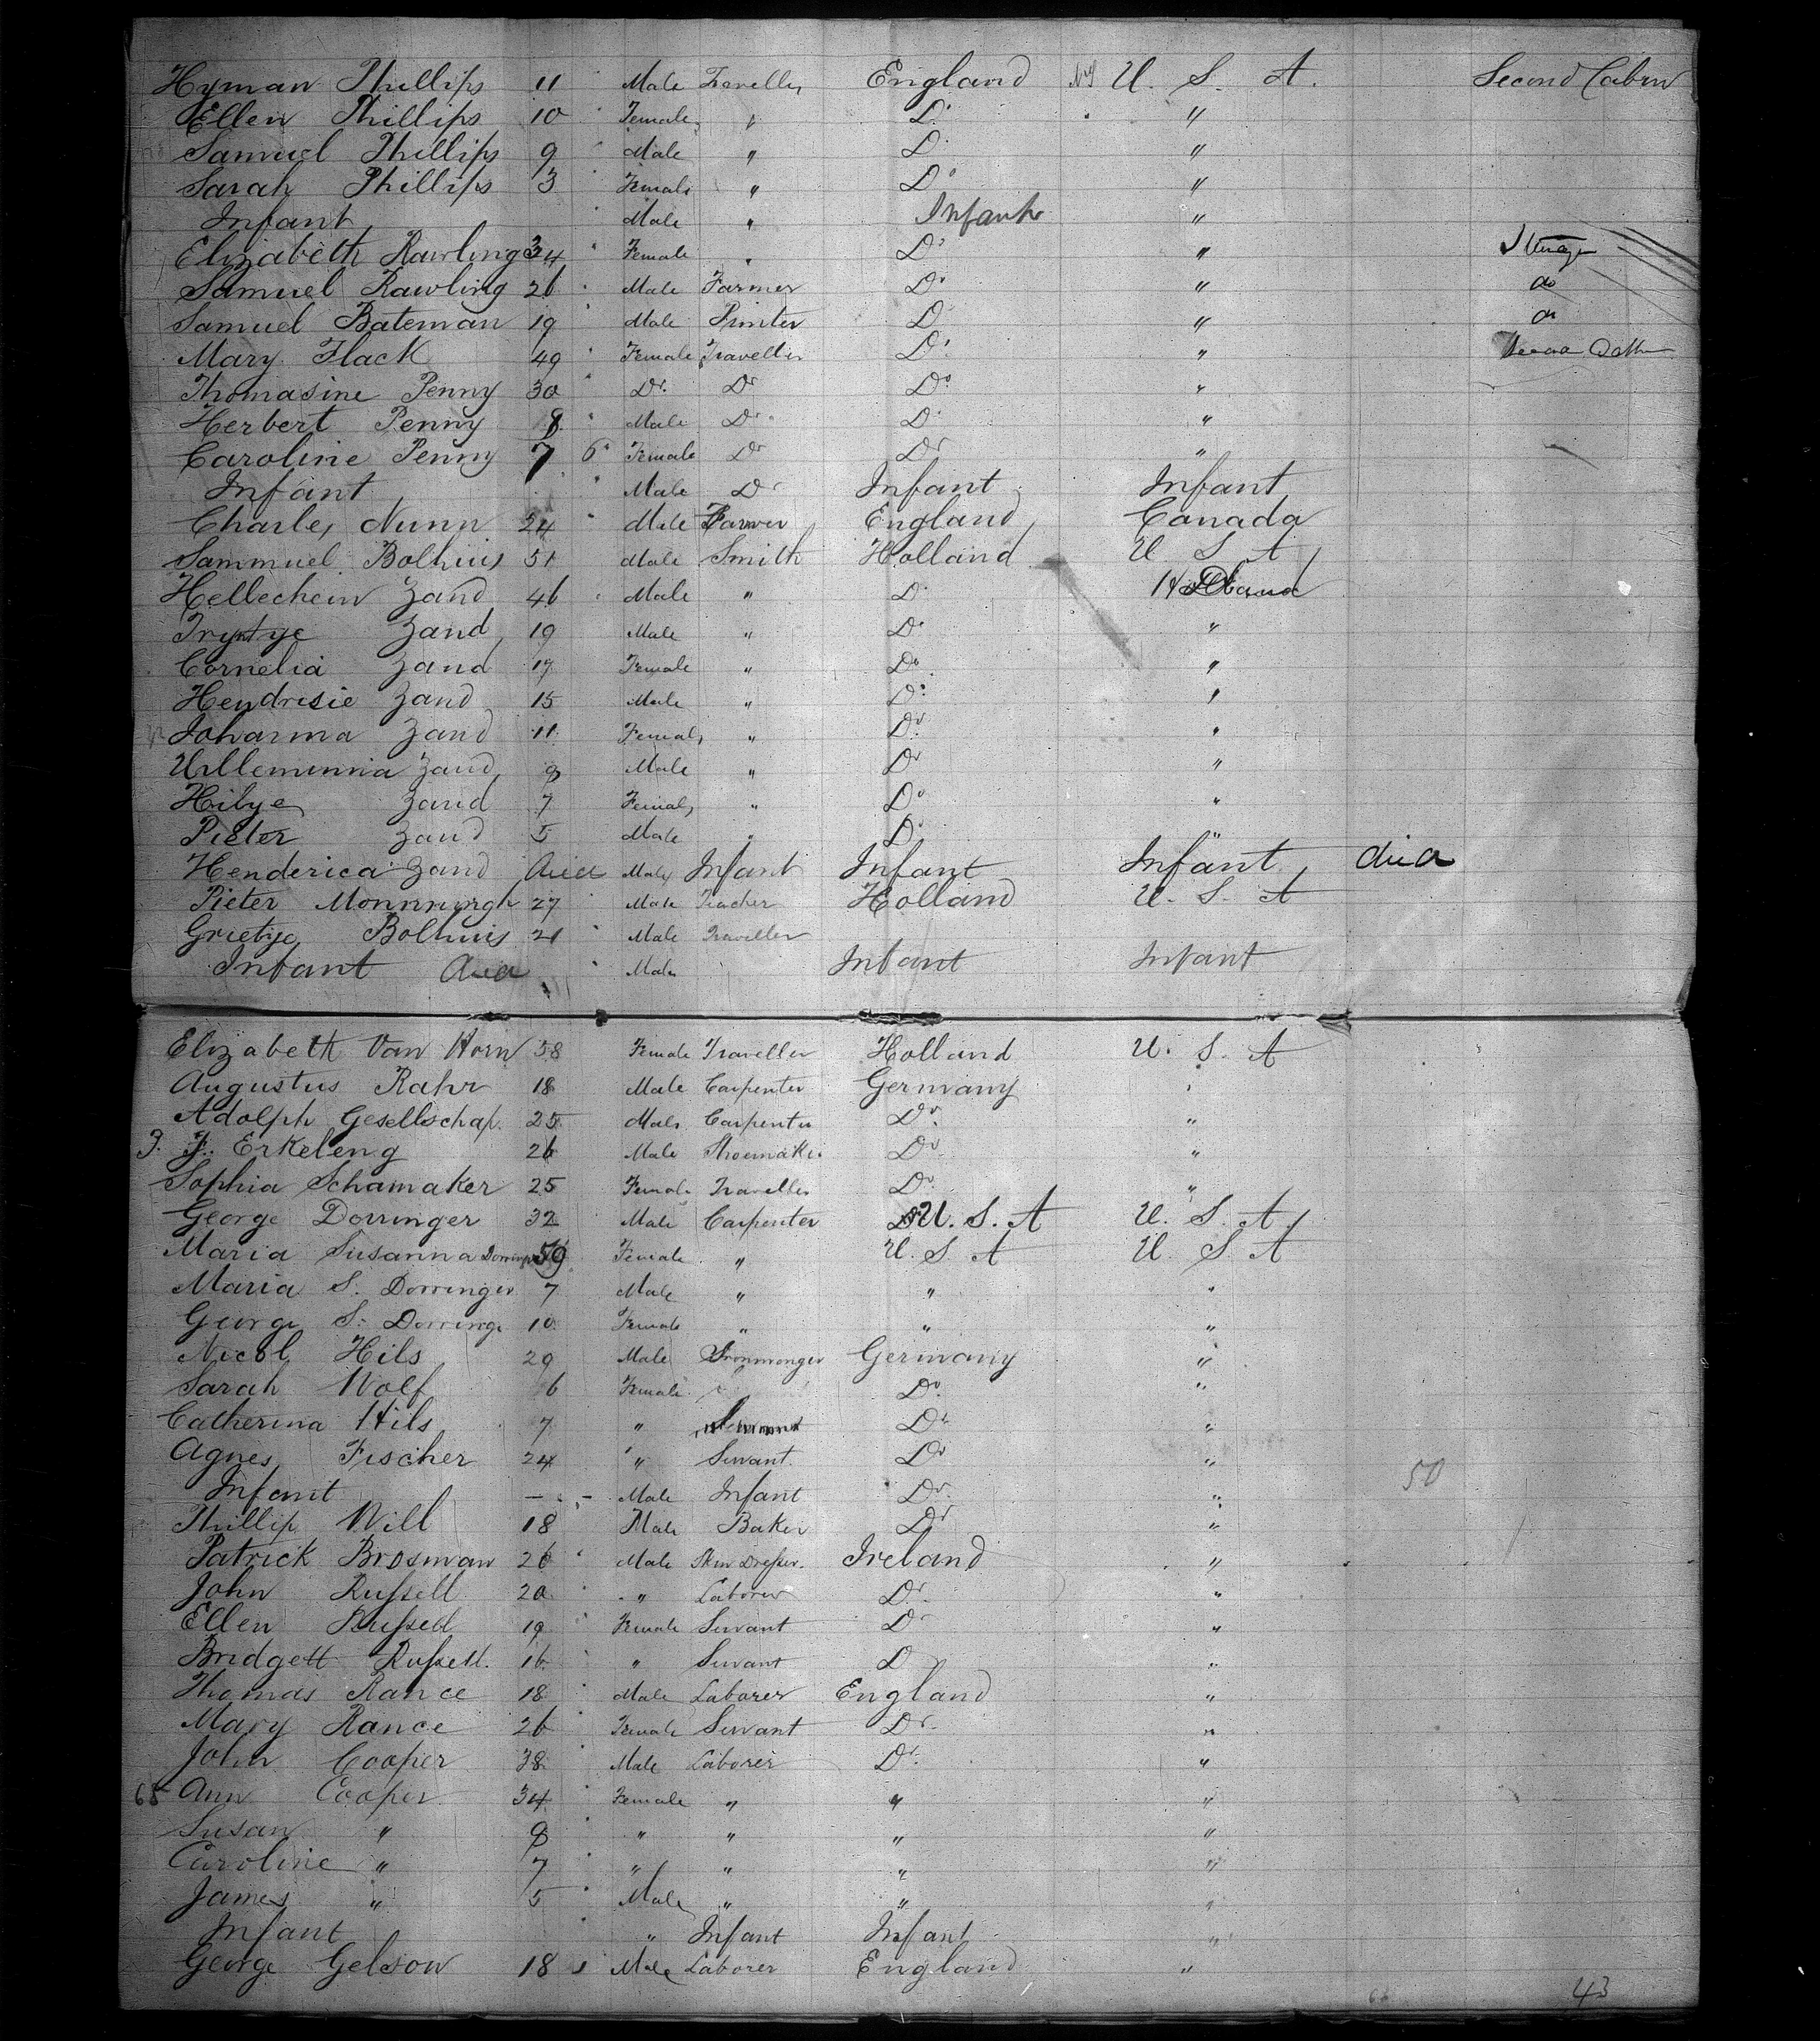 Hyman Phillips 11 Male Traveller England U. S. A. Second Cabin
Ellen Phillips 10 Female " Do "
Samuel Phillips 9 Male " Do "
Sarah Phillips 3 Female " Do "
Infant Male " Infant "
Elizabeth Rawling 34 Female " Do " Steerage
Samuel Rawling 26 Male Farmer Do " do
Samuel Bateman 19 Male Printer Do " do
Mary Flack 49 Female Traveller Do "
Thomasine Penny 30 Do Do Do "
Herbert Penny 8 Male Do Do "
Caroline Penny 7 6 Female Do Do "
Infant Male Do Infant Infant
Charles Nunn 24 Male Farmer England Canada
Sammuel Bolhuis 51 Male Smith Holland U S A
Hellechein Zand 46 Male " Do
Tryntye Zand 19 Male " Do "
Cornelia Zand 17 Female " Do "
Hendresie Zand 15 Male " Do "
Joharma Zand 11 Female " Do "
Willemmnia Zand 9 Male " Do "
Hilye Zand 7 Female " Do "
Pieter Zand 5 Male " Do "
Henderica Zand died Male Infant Infant Infant died
Pieter 27 Male Teacher Holland U. S. A
Grietye Bolhuis 21 Male Traveller
Infant died Male Infant Infant
Elizabeth Van Horn 58 Female Traveller Holland U. S. A
Augustus Rahr 18 Male Carpenter Germany "
Adolph Gesellschap. 25 Male Carpenter Do "
J. Erkeleng 26 Male Shoemaker Do "
Sophia Schamaker 25 Female Traveller Do "
George Dorringer 32 Male Carpenter U. S. A U. S. A
Maria Susanna Dorringer 59 Female " U. S. A U. S. A
Maria S. Dorringer 7 Male " " "
George S. Dorringe 10 Female " " "
Nicol Hils 29 Male Ironmonger Germany "
Sarah Wolf 6 Female Do "
Catherina Hils 7 " Do "
Agnes Fischer 24 " Servant Do "
Infant — - Male Infant Do " 50
Phillip Will 18 Male Baker Do "
Patrick Brosman 26 Male Skin Dresser Ireland "
John Russell 20 " Laborer Do "
Ellen Russell 19 Female Servant Do "
Bridgett Russell. 16 " Servant Do "
Thomas Rance 18 Male Laborer England "
Mary Rance 26 Female Servant Do "
John Cooper 38 Male Laborer Do "
65 Ann Cooper 34 Female " " "
Susan " 9 " " " "
Caroline " 7 " " " "
James " 5 Male " " "
Infant " Infant Infant "
George Gelsow 18 Male Laborer England "
43